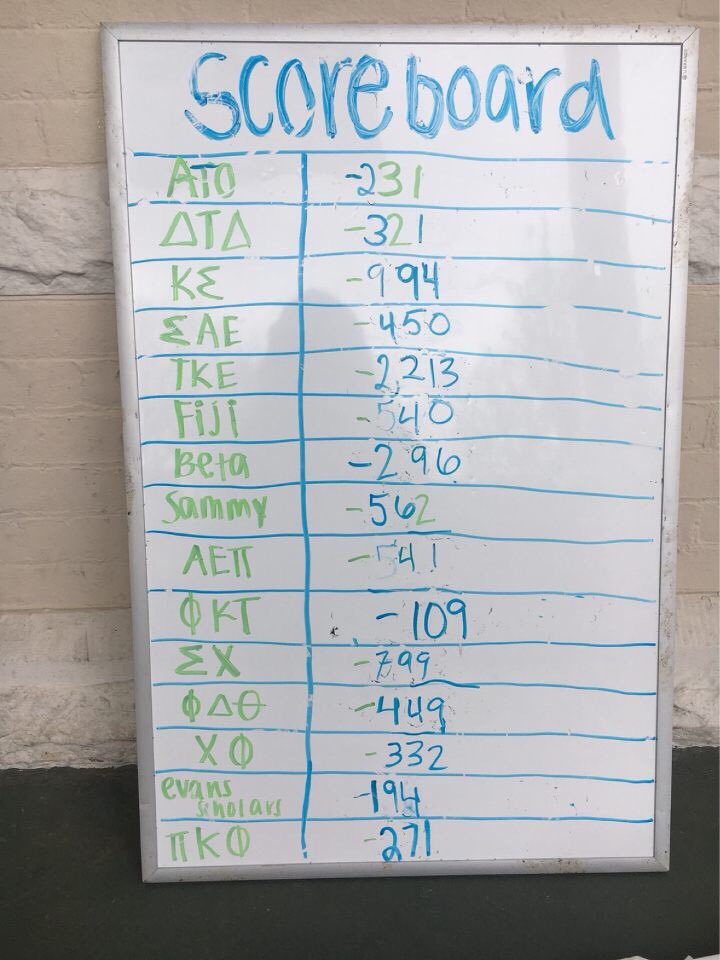 Scoreboard
ATO -231
ΔΤΔ -321
ΚΣ -994
ΣAE -450
TKE -2,213
Fiji -540
Beta -296
Sammy -562
ΑΕΠ -541
ΦΚΤ -109
ΣΧ -799
ΦΔΘ -449
ΧΦ -332
evans
scholars -194
ΠΚΦ -271